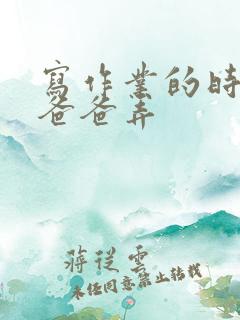 寫作業的時
爸爸弄
蔣從雲
未經同意禁止轉載